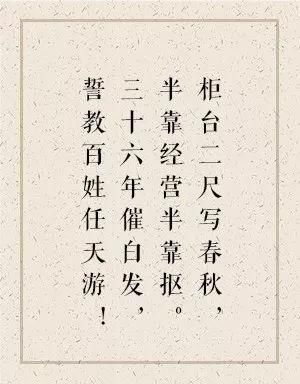 柜台二尺写春秋，
半靠经营半靠抠。
三十六年催白发，
誓教百姓任天游！